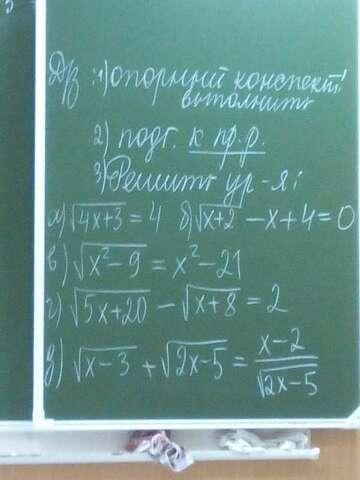 Дз: 1) опорный конспект!
выполнить
2) подг. к пр.р.
3) Решить ур-я:
а) √4x+3 = 4 б) √x+2 - x + 4 = 0
в) √x²-9 = x² - 21
г) √5x+20 - √x+8 = 2
д) √x-3 + √2x-5 = x-2 / √2x-5